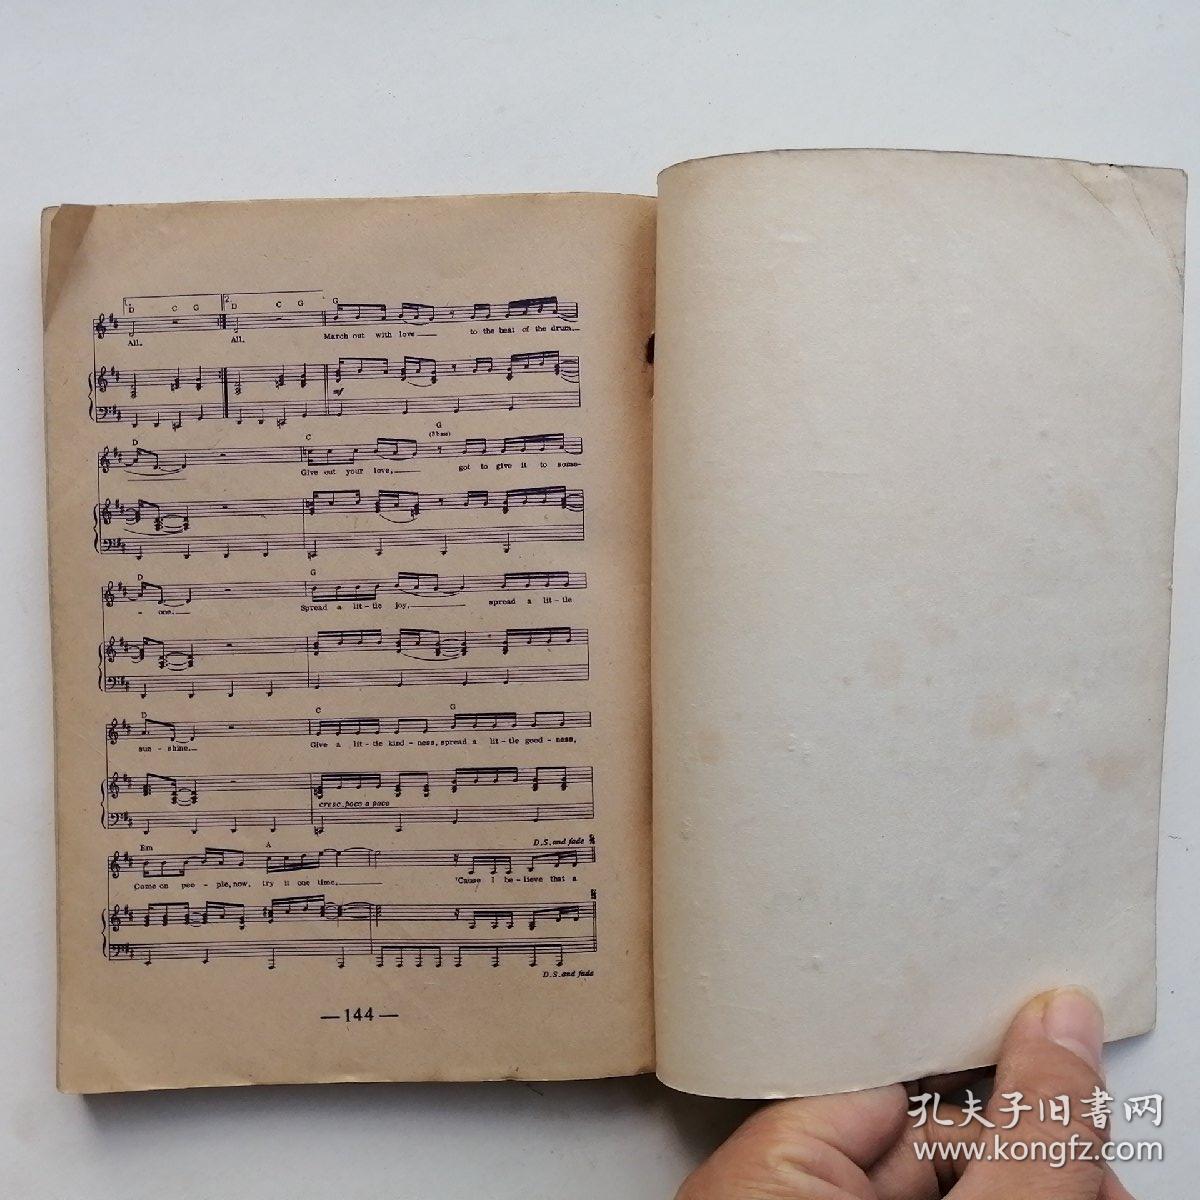 1. D C G 2. D C G G
All. All. March out with love to the beat of the drum.
mf
D C G
(B bass)
Give out your love, got to give it to some-
D G
- one. Spread a lit-tle joy, spread a lit-tle
D C G
sun-shine. Give a lit-tle kind-ness, spread a lit-tle good-ness,
cresc. poco a poco
Em A D.S. and fade
Come on peo-ple, now, try it one time, 'Cause I be-lieve that a
D.S. and fade
—144—
孔夫子旧書网
www.kongfz.com